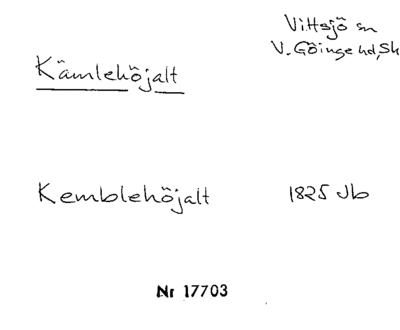 Vittsjö sn
V. Göinge hd, Sk
Kämlehöjalt
Kemblehöjalt 1825 Jb
Nr 17703